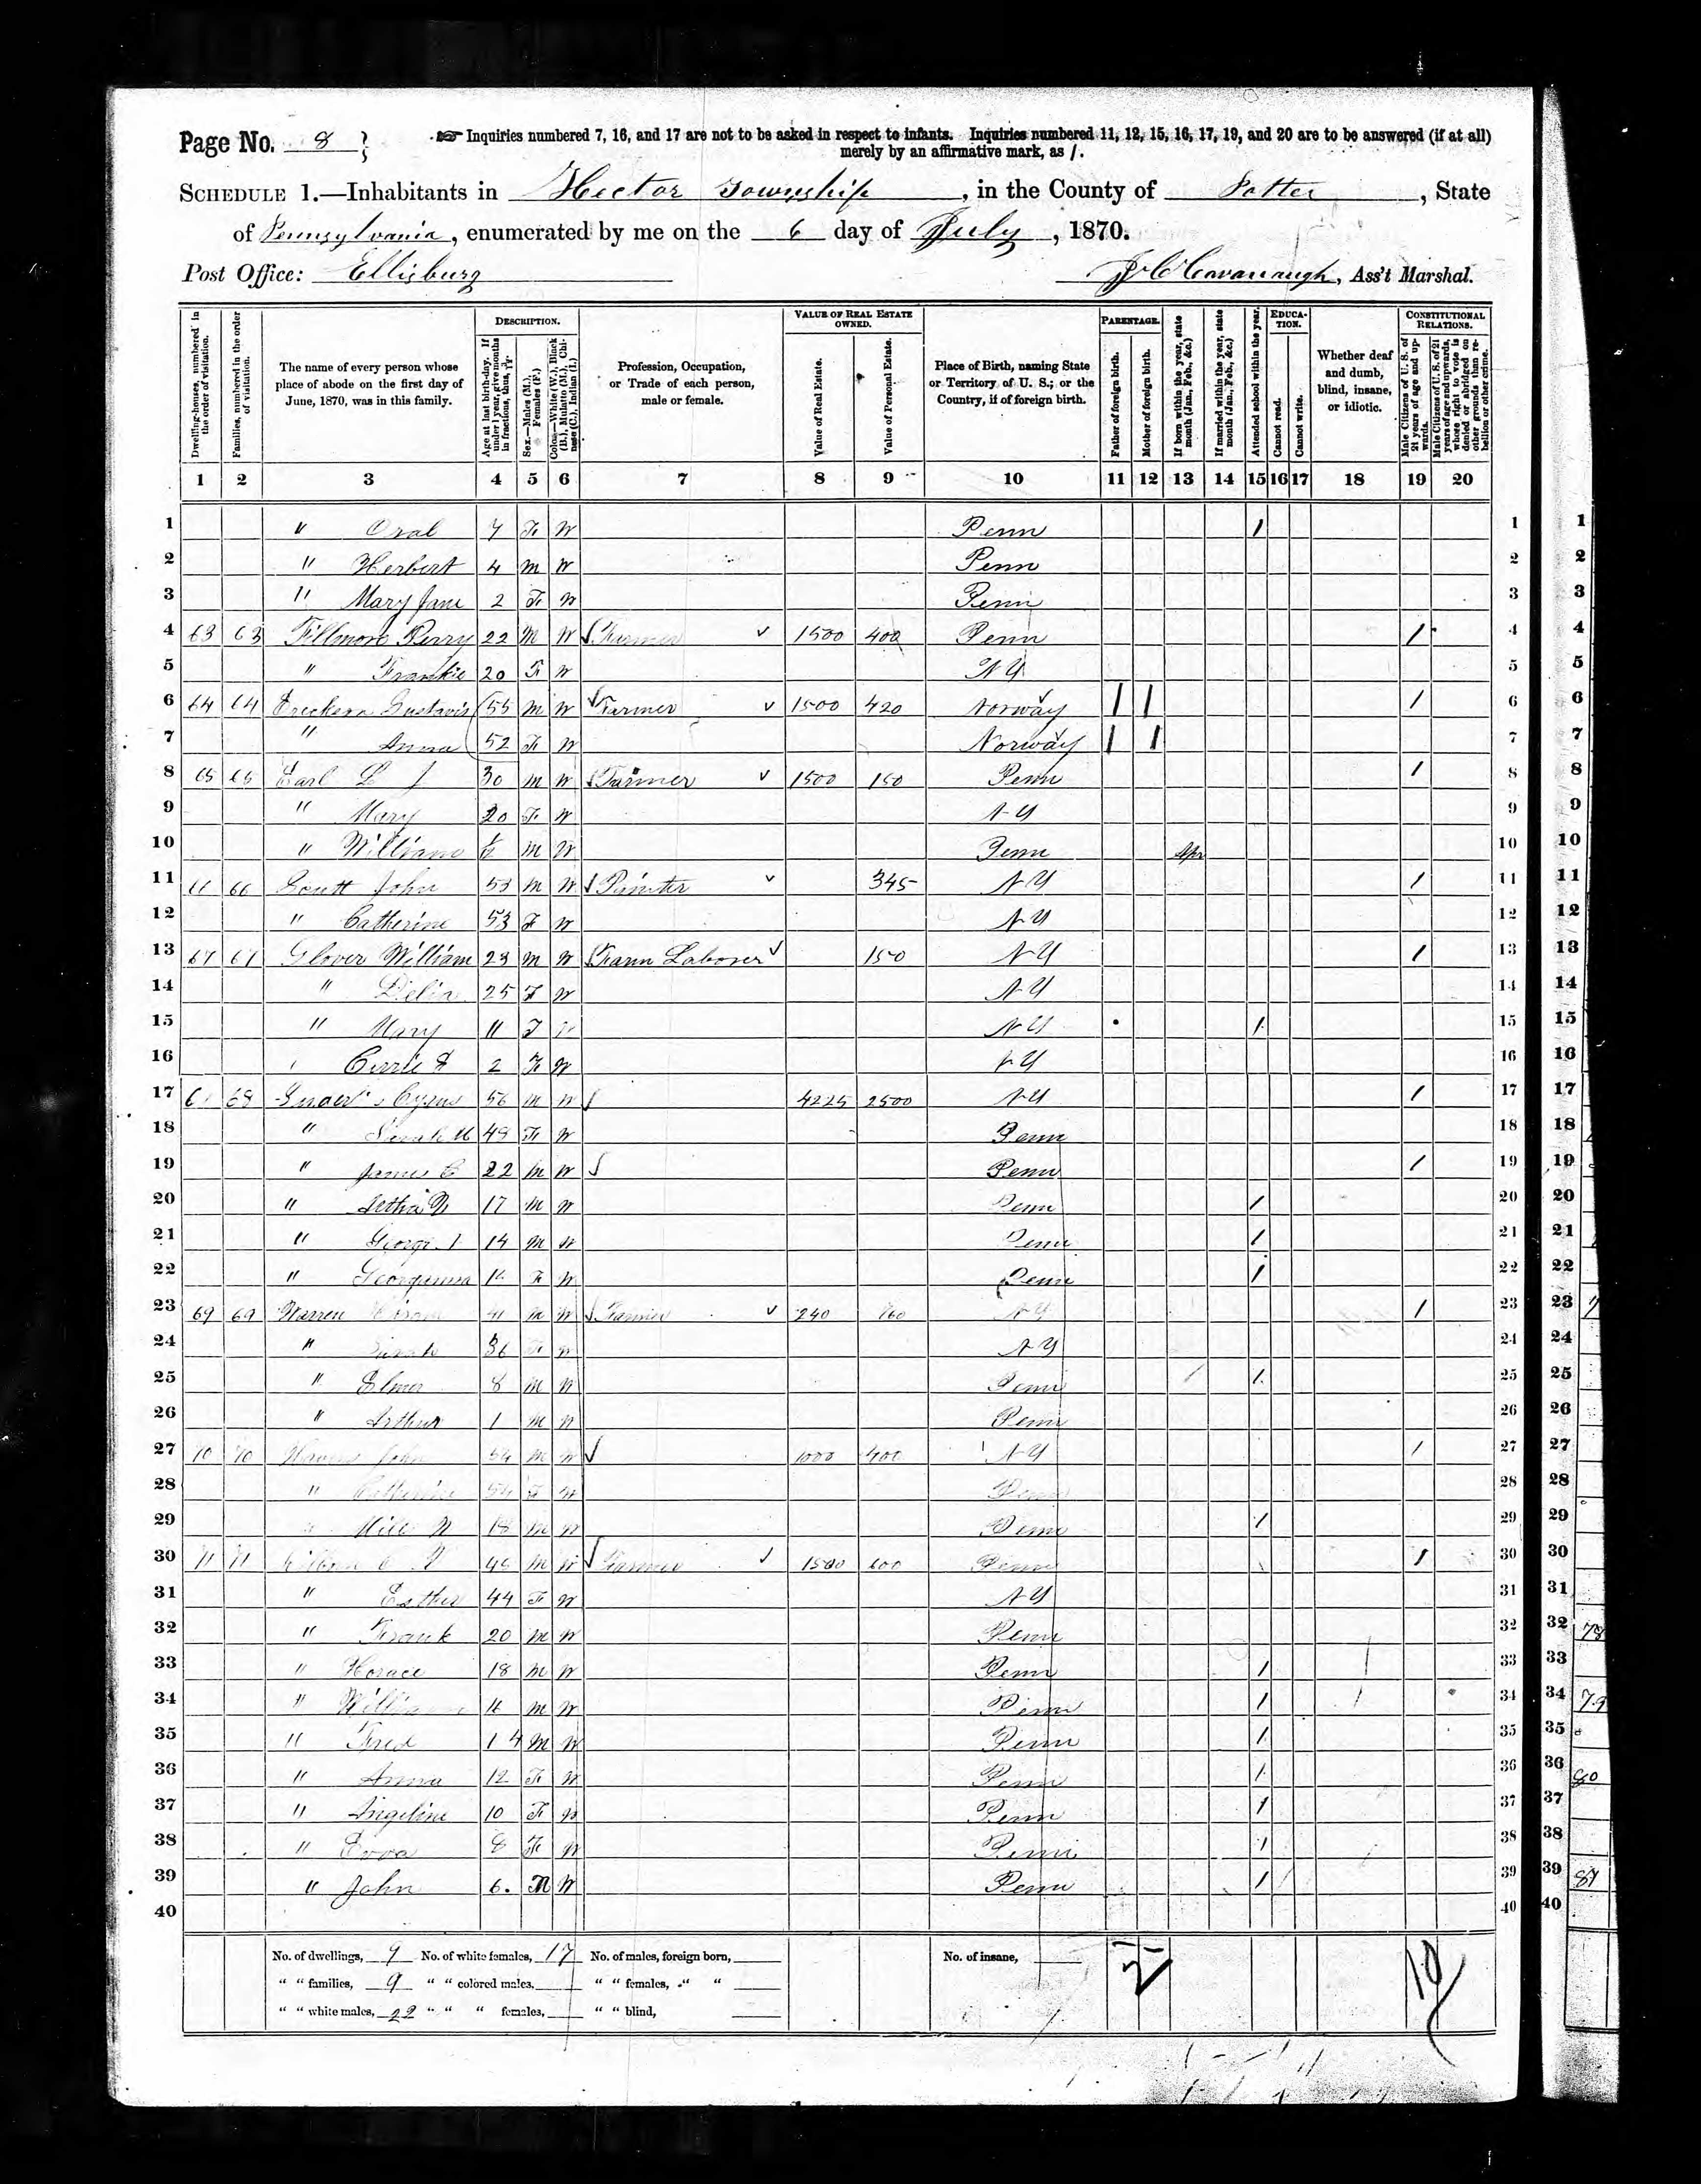 Page No. 8
☞ Inquiries numbered 7, 16, and 17 are not to be asked in respect to infants. Inquiries numbered 11, 12, 15, 16, 17, 19, and 20 are to be answered (if at all)
merely by an affirmative mark, as /.
SCHEDULE 1.—Inhabitants in Hector Township, in the County of Potter, State
of Pennsylvania, enumerated by me on the 6 day of July, 1870.
Post Office: Ellisburg
Cavanaugh, Ass't Marshal.
Dwelling-houses, numbered in the order of visitation.
Families, numbered in the order of visitation.
The name of every person whose place of abode on the first day of June, 1870, was in this family.
DESCRIPTION.
Age at last birth-day. If under 1 year, give months in fractions, thus, 3/12.
Sex.—Males (M.), Females (F.)
Color.—White (W.), Black (B.), Mulatto (M.), Chinese (C.), Indian (I.)
Profession, Occupation, or Trade of each person, male or female.
VALUE OF REAL ESTATE OWNED.
Value of Real Estate.
Value of Personal Estate.
Place of Birth, naming State or Territory of U. S.; or the Country, if of foreign birth.
PARENTAGE.
Father of foreign birth.
Mother of foreign birth.
If born within the year, state month (Jan., Feb., &c.)
If married within the year, state month (Jan., Feb., &c.)
Attended school within the year.
EDUCATION.
Cannot read.
Cannot write.
Whether deaf and dumb, blind, insane, or idiotic.
CONSTITUTIONAL RELATIONS.
Male Citizens of U. S. of 21 years of age and upwards.
Male Citizens of U. S. of 21 years of age and upwards, whose right to vote is denied or abridged on other grounds than rebellion or other crime.
1 2 3 4 5 6 7 8 9 10 11 12 13 14 15 16 17 18 19 20
1 " Oral 7 F W Penn / 1
2 " Herbert 4 M W Penn 2
3 " Mary Jane 2 F W Penn 3
4 63 63 Fillmore Perry 22 M W Farmer 1500 400 Penn / 4
5 " Frankie 20 F W N Y 5
6 64 64 Gustavis 55 M W Farmer 1500 420 Norway / / / 6
7 " Anna 52 F W Norway / / 7
8 65 65 Earl L J 30 M W Farmer 1500 150 Penn / 8
9 " Mary 20 F W N Y 9
10 " William M W Penn Apr 10
11 66 John 53 M W 345 N Y / 11
12 " Catherine 53 F W N Y 12
13 67 67 Glover William 23 M W Farm Laborer 150 N Y / 13
14 " Delia 25 F W N Y 14
15 " Mary 11 F W N Y / 15
16 2 F W N Y 16
17 68 Cyrus 56 M W 4225 2500 N Y / 17
18 " Sarah 49 F W Penn 18
19 " James C 22 M W Penn / 19
20 " 17 M W Penn / 20
21 " George 14 M W Penn / 21
22 " Georganna F W Penn / 22
23 69 69 Warren 41 M W Farmer 240 160 N Y / 23
24 " Sarah 36 F W N Y 24
25 " Elmer 8 M W Penn / 25
26 " Arthur 1 M W Penn 26
27 70 70 John 54 M W 1000 400 N Y / 27
28 " Catherine F W Penn 28
29 " 18 M W Penn / 29
30 71 71 M W Farmer 1500 600 Penn / 30
31 " Esther 44 F W N Y 31
32 " Frank 20 M W Penn 32
33 " Horace 18 M W Penn / 33
34 " William M W Penn / 34
35 " Fred 14 M W Penn / 35
36 " Anna 12 F W Penn / 36
37 " Angeline 10 F W Penn / 37
38 " Evva 8 F W Penn / 38
39 " John 6 M W Penn / 39
40 40
No. of dwellings, 9 No. of white females, 17 No. of males, foreign born, No. of insane,
" " families, 9 " " colored males, " " females, " "
" " white males, 22 " " " females, " " blind,
10